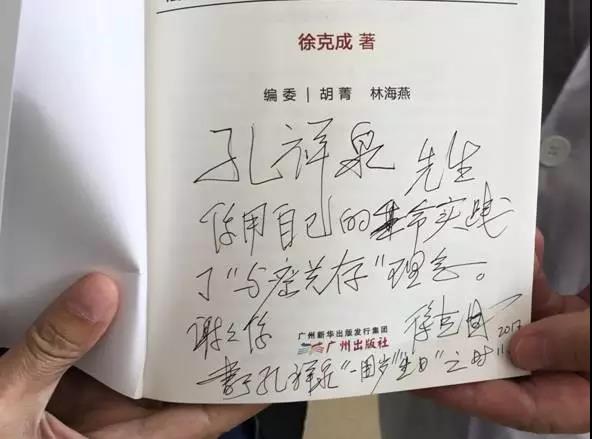 徐克成 著
编委 | 胡菁 林海燕
孔祥泉 先生
你用自己的生命实践
了“与癌共存”理念。
谢谢你
广州新华出版发行集团
广州出版社
徐克成
2017
孔祥泉“一周岁”生日”之时